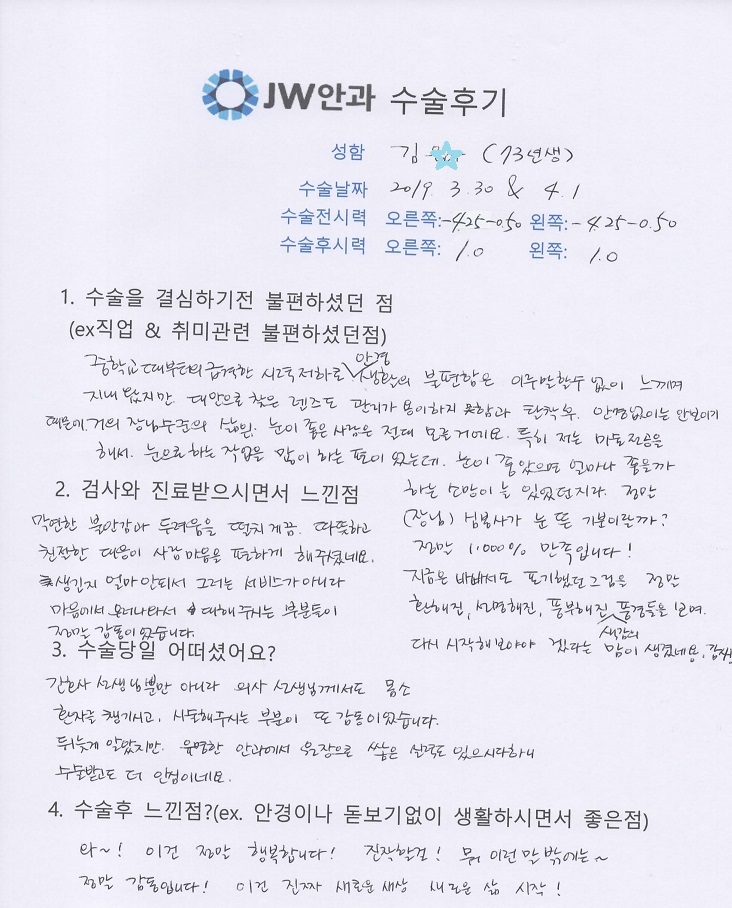 JW안과 수술후기
성함 김 (73년생)
수술날짜 2019. 3.30 & 4.1
수술전시력 오른쪽:-4.25-0.50 왼쪽:-4.25-0.50
수술후시력 오른쪽: 1.0 왼쪽: 1.0
1. 수술을 결심하기전 불편하셨던 점
(ex직업 & 취미관련 불편하셨던점)
중학교때부터의 급격한 시력저하로 안경 생활의 불편함은 이루말할수 없이 느끼며
지내 왔지만. 대안으로 찾은 렌즈도 관리가 용이하지 못함과 탄착후. 안경없이는 안보이기
때문에. 거의 장님수준의 삶읜. 눈이 좋은 사람은 절대 모를거에요. 특히 저는 미술전공을
해서. 눈으로 하는 작업을 많이 하는 편이었는데. 눈이 좋았으면 얼마나 좋을까
하는 소망이 늘 있었던지라. 정말
(장님) 심봉사가 눈 뜬 기분이랄까?
정말 1.000% 만족입니다!
지금은 바빠서도 포기했던 그림을 정말
환해진, 선명해진, 풍부해진 색감의 풍경들을 보며.
다시 시작해보아야 겠다는 맘이 생겼네용.
2. 검사와 진료받으시면서 느낀점
막연한 불안감과 두려움을 떨치게끔. 따뜻하고
친절한 대응이 사람마음을 편하게 해주셨네요.
생긴지 얼마 안되서 그러는 서비스가 아니라
마음에서 우러나와서 대해주시는 부분들이
정말 감동이었습니다.
3. 수술당일 어떠셨어요?
간호사 선생님뿐만 아니라 의사 선생님께서도 몸소
환자를 챙기시고, 시술해주시는 부분이 또 감동이었습니다.
뒤늦게 알았지만. 유명한 안과에서 원장으로 쌓은 실력도 있으시다하니
수술받고도 더 안심이네요.
4. 수술후 느낀점?(ex. 안경이나 돋보기없이 생활하시면서 좋은점)
와~! 이건 정말 행복합니다! 진작할걸! 뭐 이런 말 밖에는~
정말 감동입니다! 이건 진짜 새로운 세상 새로운 삶 시작!